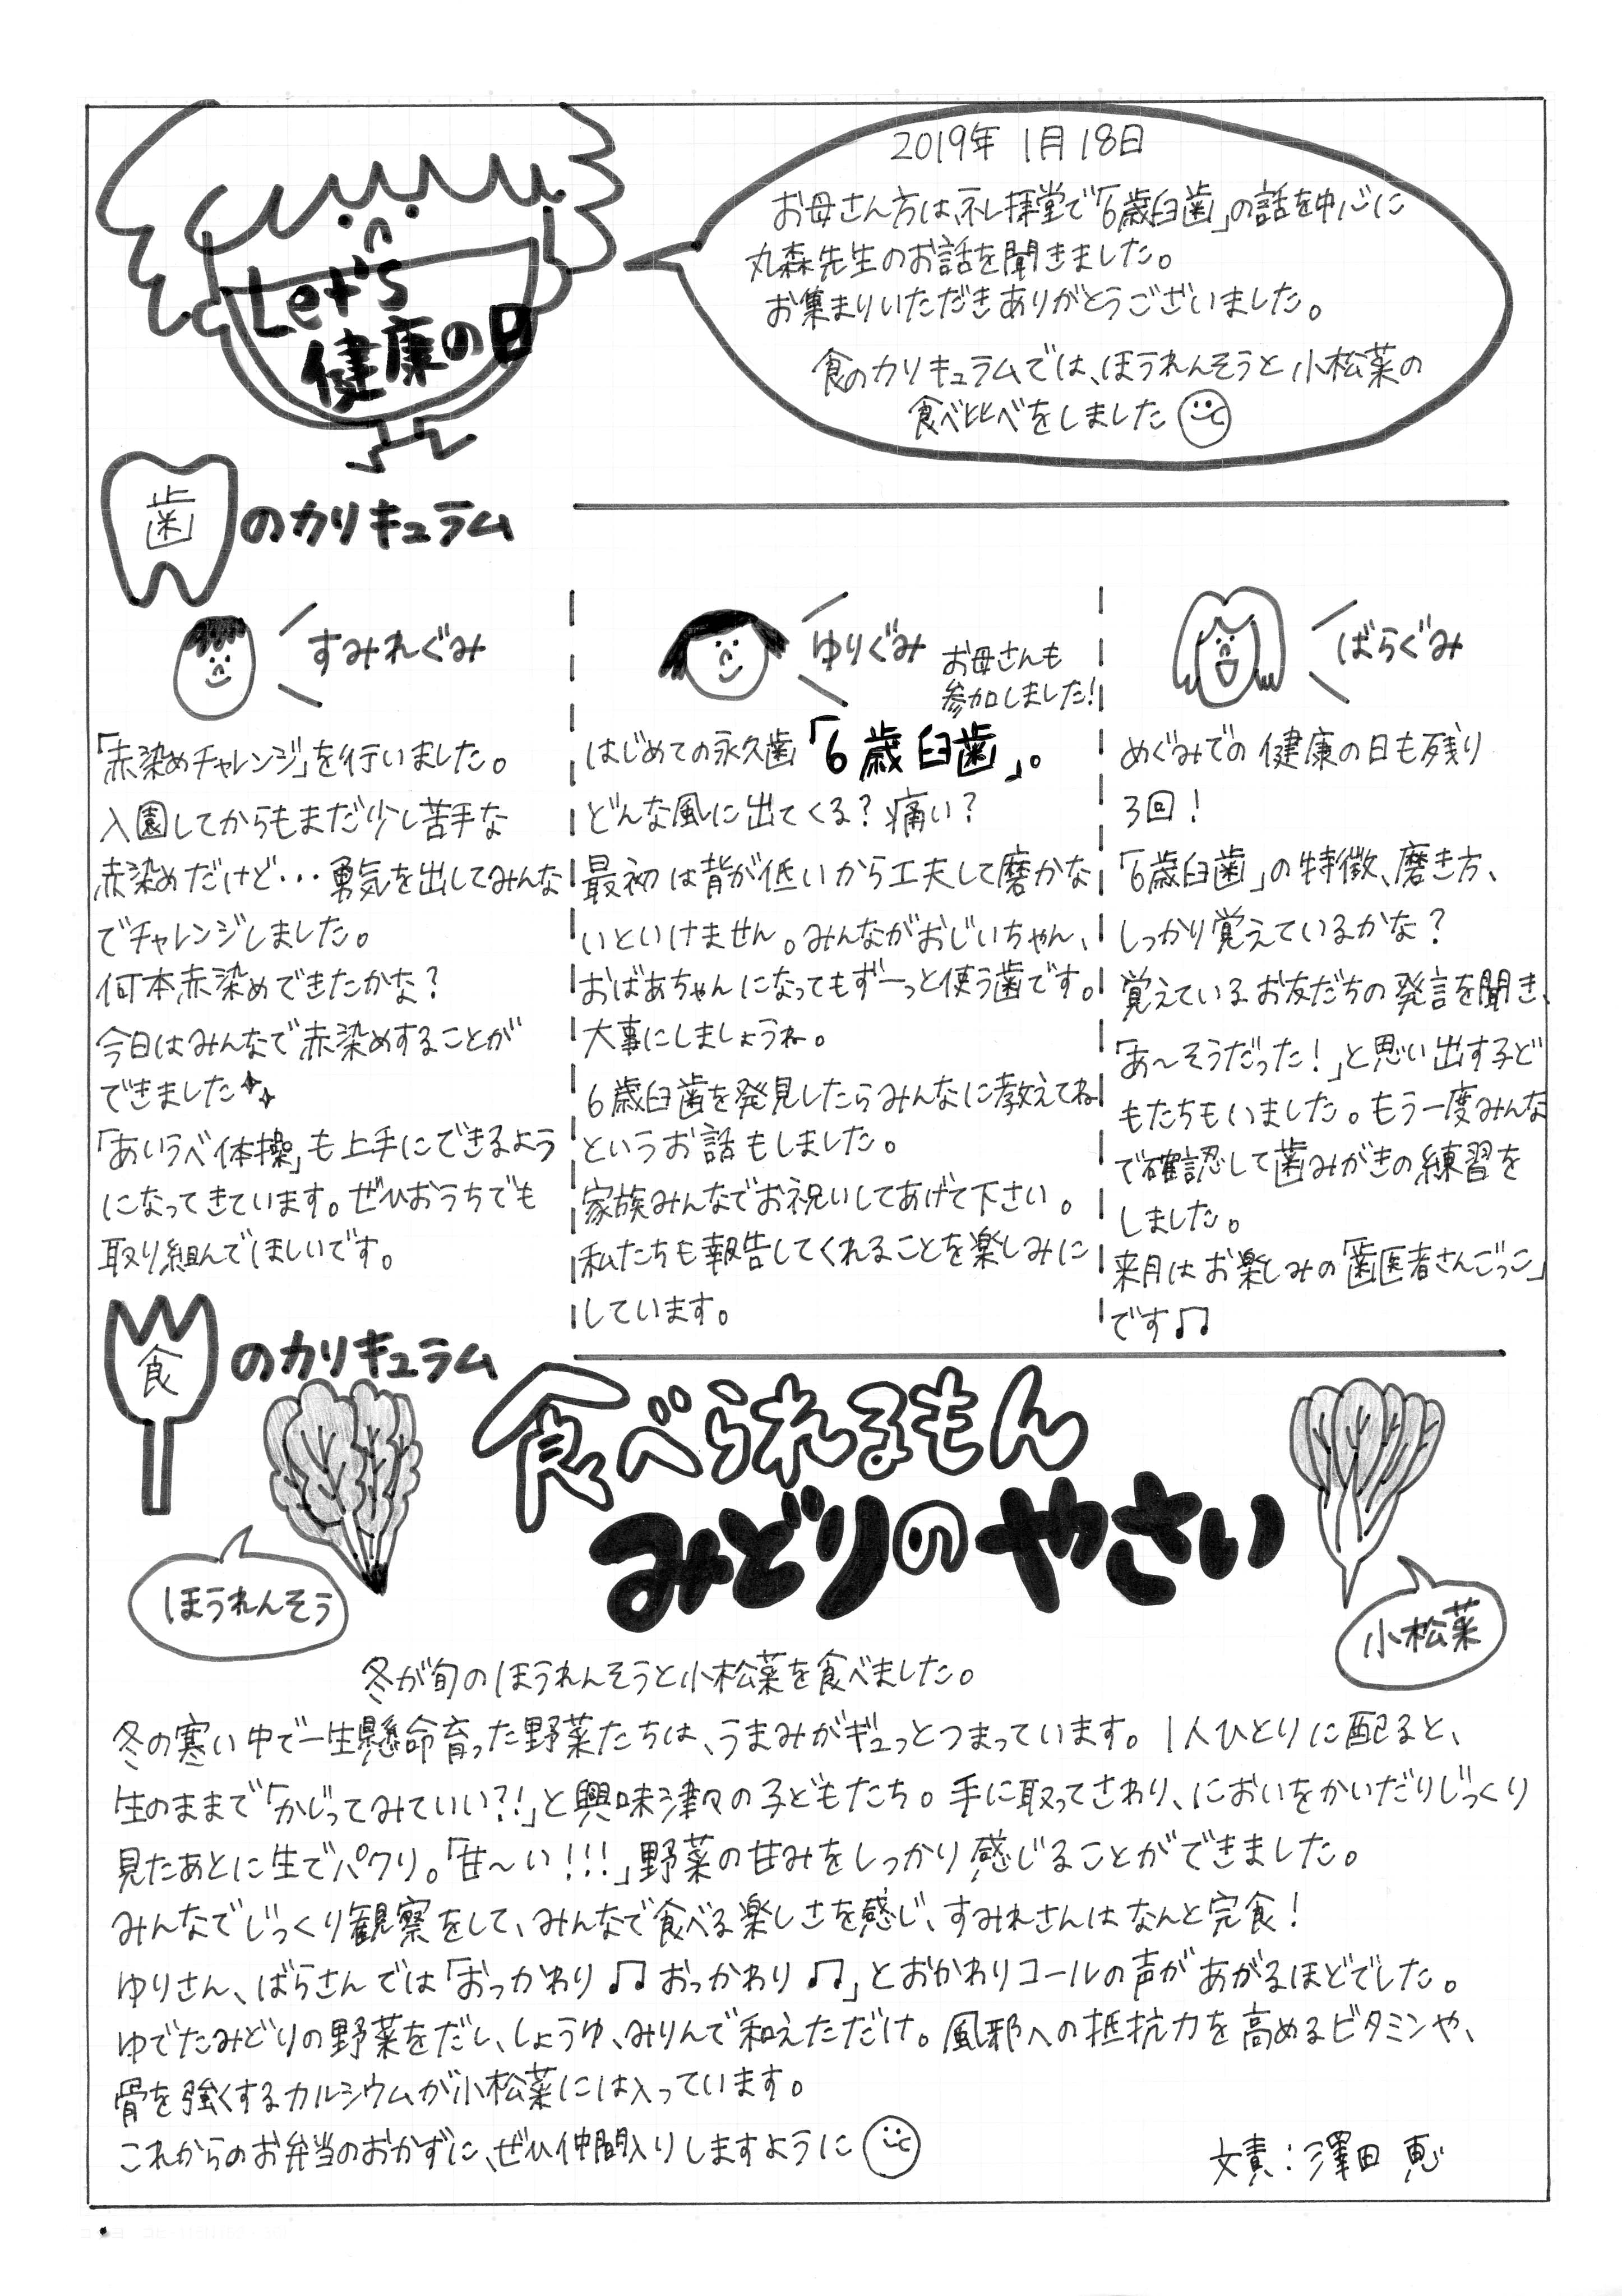 Let's
健康の日
2019年 1月18日
お母さん方は、礼拝堂で「6歳臼歯」の話を中心に
丸森先生のお話を聞きました。
お集まりいただきありがとうございました。
食のカリキュラムでは、ほうれんそうと小松菜の
食べ比べをしました
歯のカリキュラム
すみれぐみ
「赤染めチャレンジ」を行いました。
入園してからもまだ少し苦手な
赤染めだけど・・・勇気を出してみんな
でチャレンジしました。
何本赤染めできたかな?
今日はみんなで赤染めすることが
できました
「あいうべ体操」も上手にできるよう
になってきています。ぜひおうちでも
取り組んでほしいです。
ゆりぐみ
お母さんも
参加しました!
はじめての永久歯「6歳臼歯」。
どんな風に出てくる?痛い?
最初は背が低いから工夫して磨かな
いといけません。みんながおじいちゃん、
おばあちゃんになってもずーっと使う歯です。
大事にしましょうね。
6歳臼歯を発見したらみんなに教えてね
というお話もしました。
家族みんなでお祝いしてあげて下さい。
私たちも報告してくれることを楽しみに
しています。
ばらぐみ
めぐみでの健康の日も残り
3回!
「6歳臼歯」の特徴、磨き方、
しっかり覚えているかな?
覚えているお友だちの発言を聞き、
「あ〜そうだった!」と思い出す子ど
もたちもいました。もう一度みんな
で確認して歯みがきの練習を
しました。
来月はお楽しみの「歯医者さんごっこ」
です♫
食のカリキュラム
食べられるもん
みどりのやさい
ほうれんそう
小松菜
冬が旬のほうれんそうと小松菜を食べました。
冬の寒い中で一生懸命育った野菜たちは、うまみがギュっとつまっています。1人ひとりに配ると、
生のままで「かじってみていい?!」と興味津々の子どもたち。手に取ってさわり、においをかいだりじっくり
見たあとに生でパクリ。「甘〜い!!!」野菜の甘みをしっかり感じることができました。
みんなでじっくり観察をして、みんなで食べる楽しさを感じ、すみれさんはなんと完食!
ゆりさん、ばらさんでは「おっかわり♫おっかわり♫」とおかわりコールの声があがるほどでした。
ゆでたみどりの野菜をだし、しょうゆ、みりんで和えただけ。風邪への抵抗力を高めるビタミンや、
骨を強くするカルシウムが小松菜には入っています。
これからのお弁当のおかずに、ぜひ仲間入りしますように
文責:澤田 恵